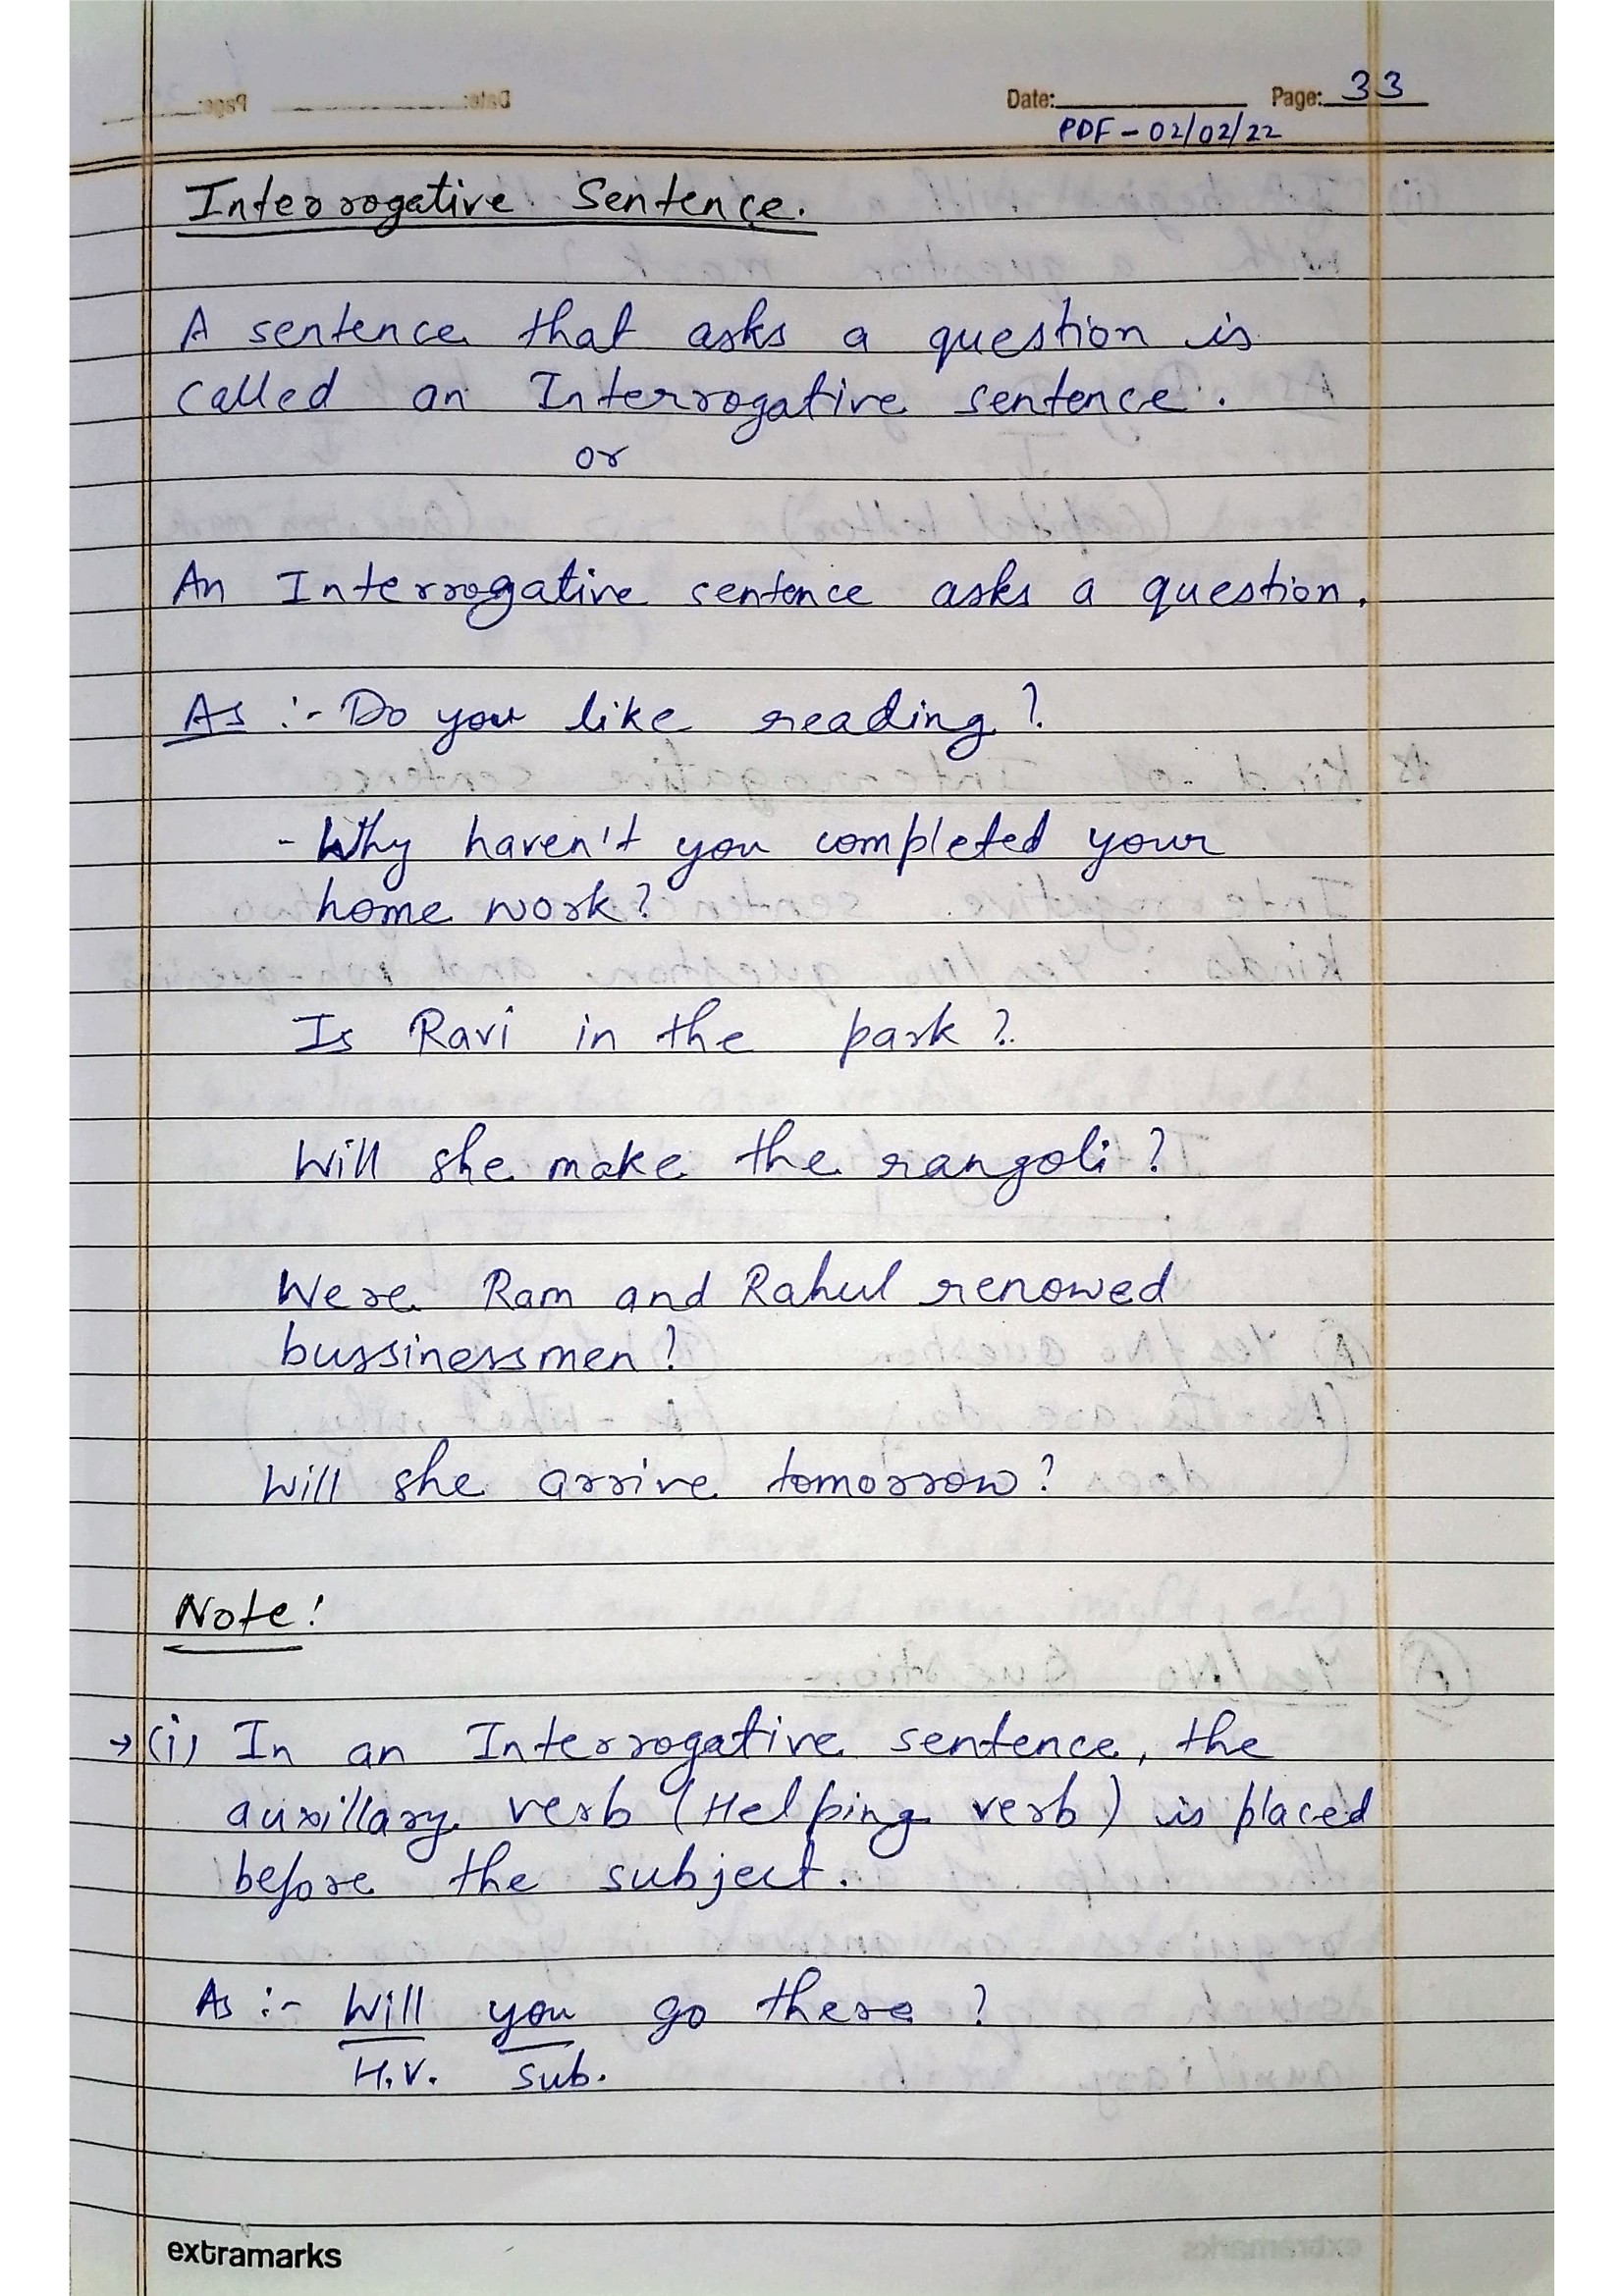 Date: Page: 33
PDF - 02/02/22
Interrogative Sentence.
A sentence that asks a question is
called an Interrogative sentence.
or
An Interrogative sentence asks a question.
As :- Do you like reading?
- Why haven't you completed your
home work?
Is Ravi in the park?
Will she make the rangoli?
Were Ram and Rahul renowed
bussinessmen?
Will she arrive tomorrow?
Note!
→ (i) In an Interrogative sentence, the
auxillary verb (Helping verb) is placed
before the subject.
As :- Will you go there?
H.V. Sub.
extramarks